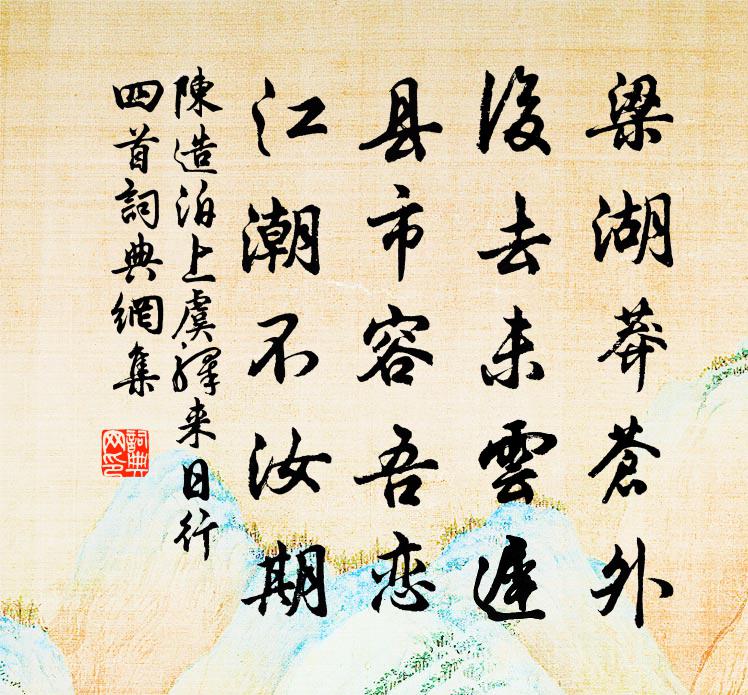 梁湖莽蒼外
後去未雲遲
县市容吾恋
江潮不汝期
陳造泊上虞驛来日行
四首詞典網集
詞典
网印